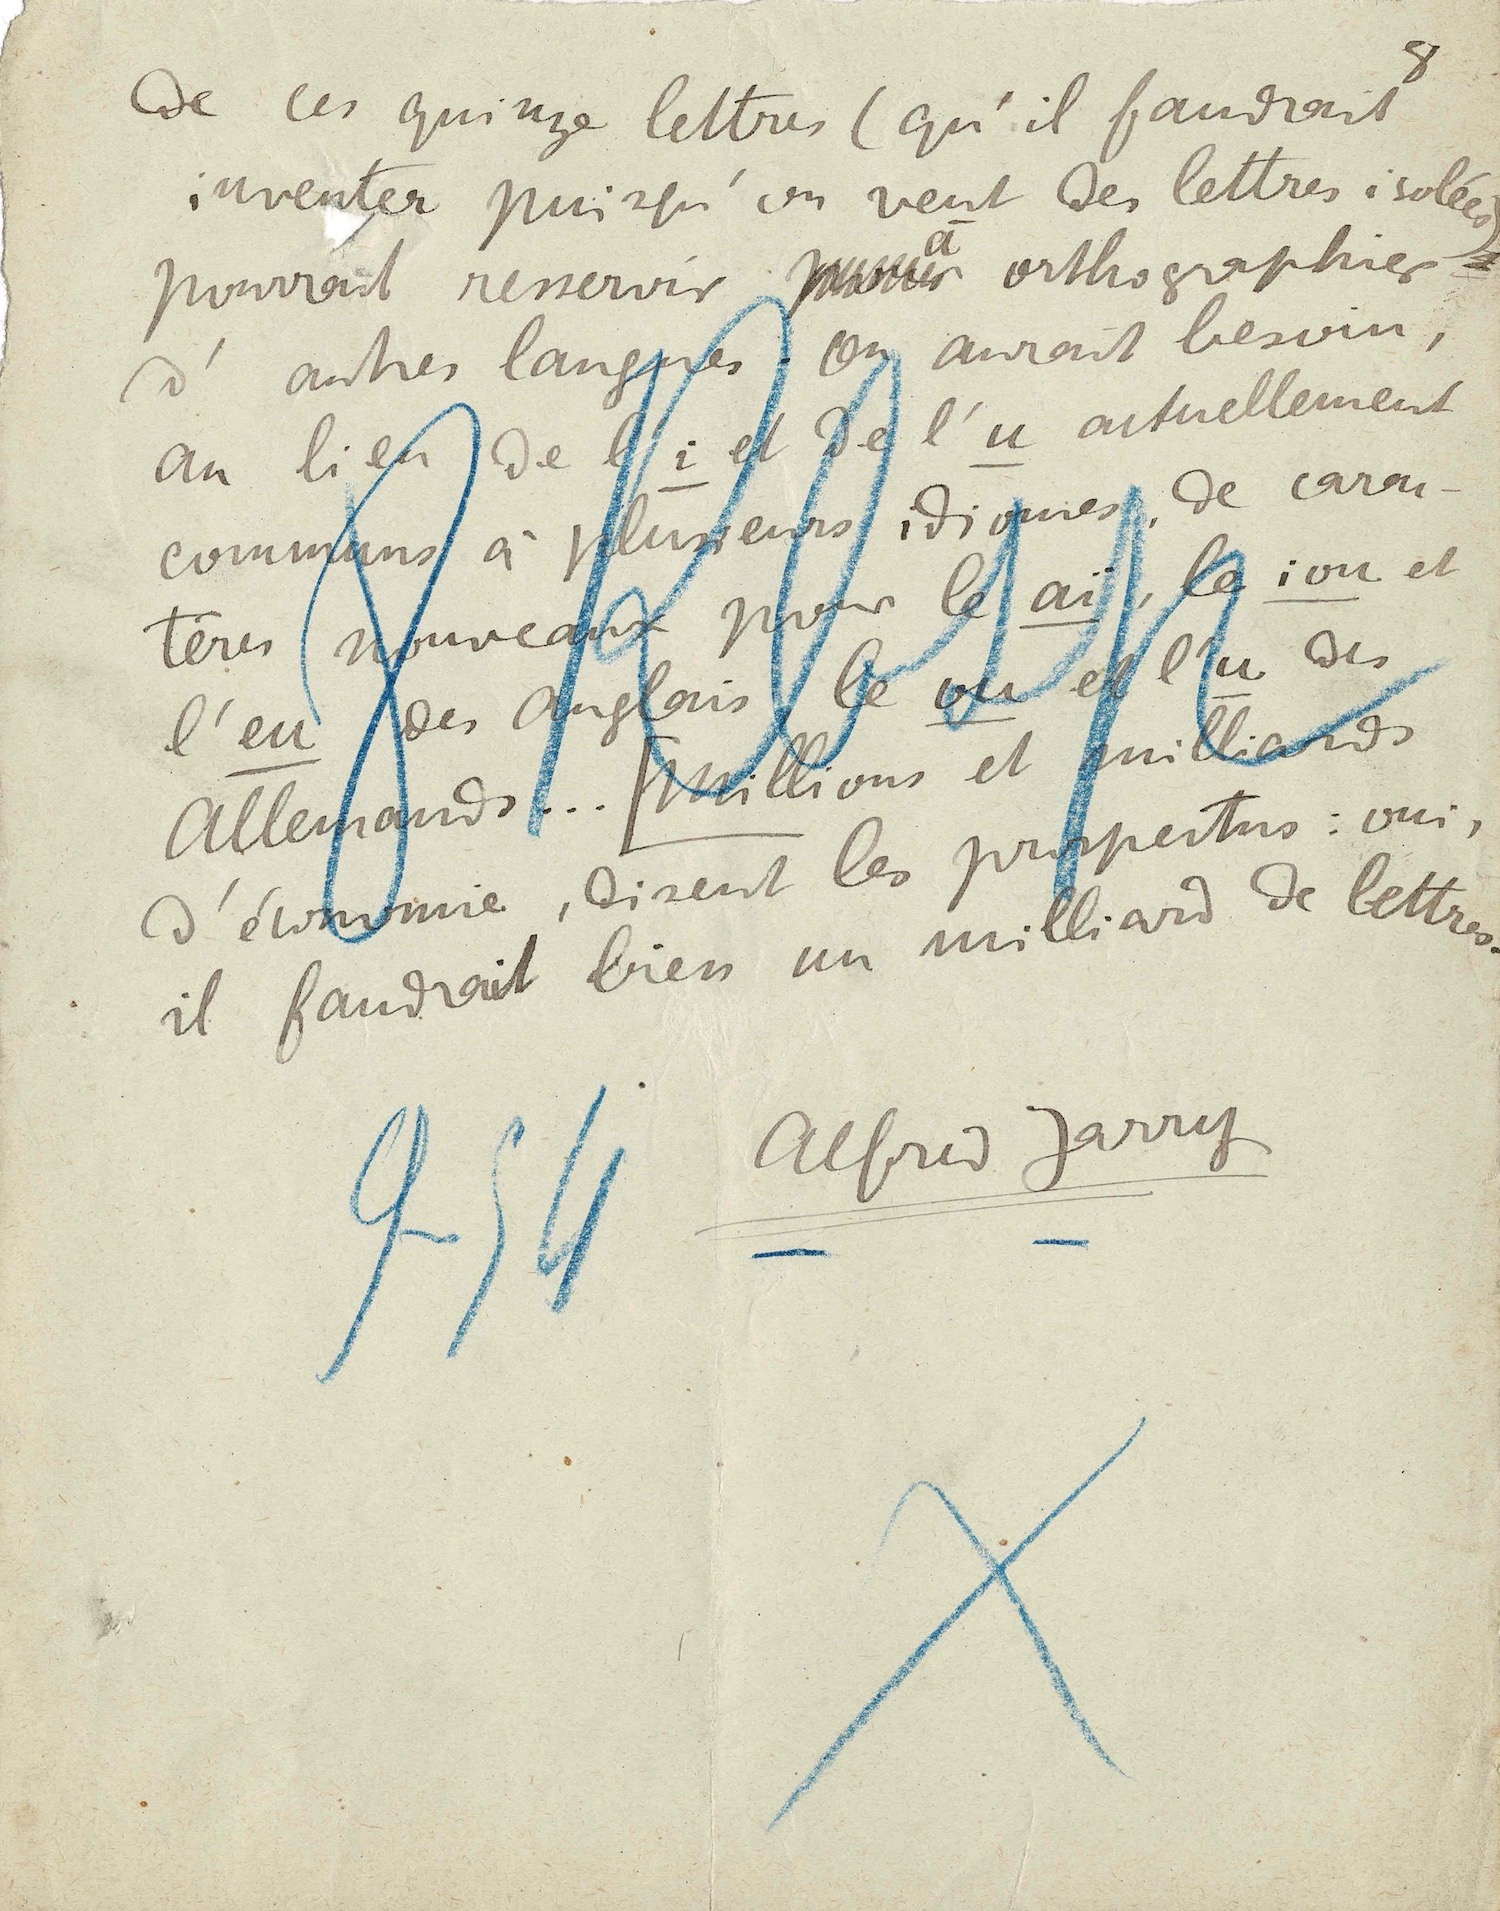 8
de ces quinze lettres (qu'il faudrait
inventer puisqu'on veut des lettres isolées)
pourrait resservir à orthographier
d'autres langues. On aurait besoin,
au lieu de l'i et de l'u actuellement
communs à plusieurs idiomes, de carac-
tères nouveaux pour le aï, le iou et
l'eu des Anglais, le ou et l'u des
Allemands... [Millions et milliards
d'économie, disent les prospectus : oui,
il faudrait bien un milliard de lettres.
Alfred Jarry
9-54
X